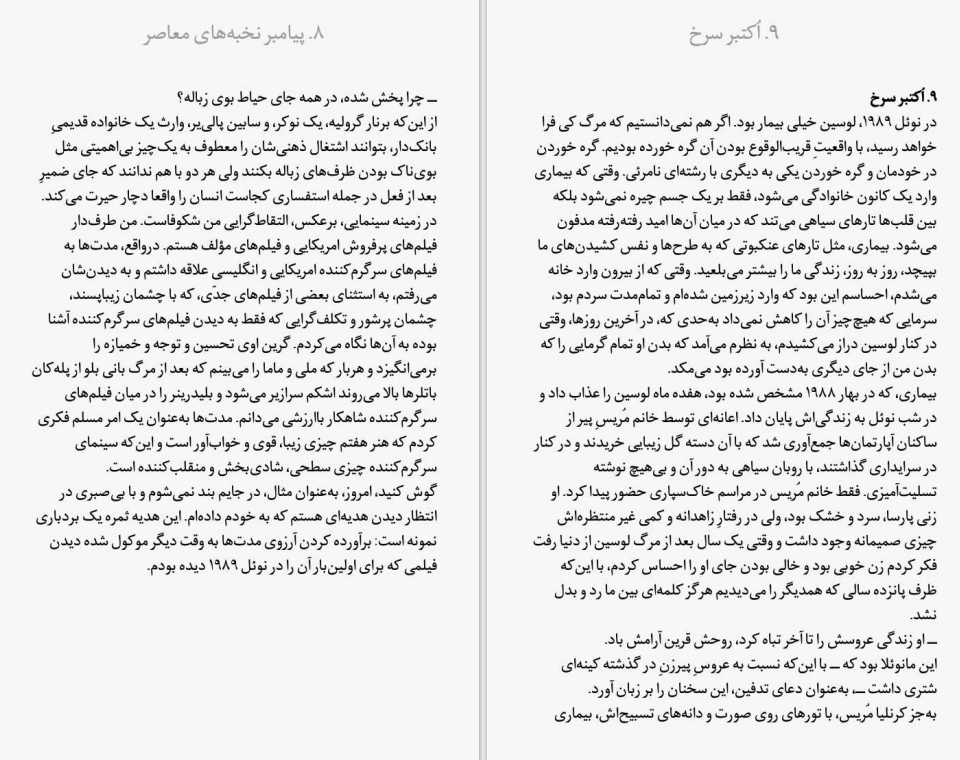 ۸. پیامبر نخبه‌های معاصر
ــ چرا پخش شده، در همه جای حیاط بوی زباله؟
از این‌که برنار گرولیه، یک نوکر، و سابین پالی‌یر، وارث یک خانواده قدیمیِ
بانک‌دار، بتوانند اشتغال ذهنی‌شان را معطوف به یک‌چیز بی‌اهمیتی مثل
بوی‌ناک بودن ظرف‌های زباله بکنند ولی هر دو با هم ندانند که جای ضمیرِ
بعد از فعل در جمله استفساری کجاست انسان را واقعا دچار حیرت می‌کند.
در زمینه سینمایی، برعکس، التقاط‌گرایی من شکوفاست. من طرف‌دار
فیلم‌های پرفروش امریکایی و فیلم‌های مؤلف هستم. درواقع، مدت‌ها به
فیلم‌های سرگرم‌کننده امریکایی و انگلیسی علاقه داشتم و به دیدن‌شان
می‌رفتم، به استثنای بعضی از فیلم‌های جدّی، که با چشمان زیباپسند،
چشمان پرشور و تکلف‌گرایی که فقط به دیدن فیلم‌های سرگرم‌کننده آشنا
بوده به آن‌ها نگاه می‌کردم. گرین اوی تحسین و توجه و خمیازه را
برمی‌انگیزد و هربار که ملی و ماما را می‌بینم که بعد از مرگ بانی بلو از پله‌کان
باتلرها بالا می‌روند اشکم سرازیر می‌شود و بلیدرینر را در میان فیلم‌های
سرگرم‌کننده شاهکار باارزشی می‌دانم. مدت‌ها به‌عنوان یک امر مسلم فکری
کردم که هنر هفتم چیزی زیبا، قوی و خواب‌آور است و این‌که سینمای
سرگرم‌کننده چیزی سطحی، شادی‌بخش و منقلب‌کننده است.
گوش کنید، امروز، به‌عنوان مثال، در جایم بند نمی‌شوم و با بی‌صبری در
انتظار دیدن هدیه‌ای هستم که به خودم داده‌ام. این هدیه ثمره یک بردباری
نمونه است: برآورده کردن آرزوی مدت‌ها به وقت دیگر موکول شده دیدن
فیلمی که برای اولین‌بار آن را در نوئل ۱۹۸۹ دیده بودم.
۹. اُکتبر سرخ
۹. اُکتبر سرخ
در نوئل ۱۹۸۹، لوسین خیلی بیمار بود. اگر هم نمی‌دانستیم که مرگ کی فرا
خواهد رسید، با واقعیتِ قریب‌الوقوع بودن آن گره خورده بودیم. گره خوردن
در خودمان و گره خوردن یکی به دیگری با رشته‌ای نامرئی. وقتی که بیماری
وارد یک کانون خانوادگی می‌شود، فقط بر یک جسم چیره نمی‌شود بلکه
بین قلب‌ها تارهای سیاهی می‌تند که در میان آن‌ها امید رفته‌رفته مدفون
می‌شود. بیماری، مثل تارهای عنکبوتی که به طرح‌ها و نفس کشیدن‌های ما
بپیچد، روز به روز، زندگی ما را بیشتر می‌بلعید. وقتی که از بیرون وارد خانه
می‌شدم، احساسم این بود که وارد زیرزمین شده‌ام و تمام‌مدت سردم بود،
سرمایی که هیچ‌چیز آن را کاهش نمی‌داد به‌حدی که، در آخرین روزها، وقتی
در کنار لوسین دراز می‌کشیدم، به نظرم می‌آمد که بدن او تمام گرمایی را که
بدن من از جای دیگری به‌دست آورده بود می‌مکد.
بیماری، که در بهار ۱۹۸۸ مشخص شده بود، هفده ماه لوسین را عذاب داد و
در شب نوئل به زندگی‌اش پایان داد. اعانه‌ای توسط خانم مُریس پیر از
ساکنان آپارتمان‌ها جمع‌آوری شد که با آن دسته گل زیبایی خریدند و در کنار
در سرایداری گذاشتند، با روبان سیاهی به دور آن و بی‌هیچ نوشته
تسلیت‌آمیزی. فقط خانم مُریس در مراسم خاک‌سپاری حضور پیدا کرد. او
زنی پارسا، سرد و خشک بود، ولی در رفتارِ زاهدانه و کمی غیر منتظره‌اش
چیزی صمیمانه وجود داشت و وقتی یک سال بعد از مرگ لوسین از دنیا رفت
فکر کردم زن خوبی بود و خالی بودن جای او را احساس کردم، با این‌که
ظرف پانزده سالی که همدیگر را می‌دیدیم هرگز کلمه‌ای بین ما رد و بدل
نشد.
ــ او زندگی عروسش را تا آخر تباه کرد، روحش قرین آرامش باد.
این مانوئلا بود که ــ با این‌که نسبت به عروسِ پیرزنِ در گذشته کینه‌ای
شتری داشت ــ، به‌عنوان دعای تدفین، این سخنان را بر زبان آورد.
به‌جز کرنلیا مُریس، با تورهای روی صورت و دانه‌های تسبیح‌اش، بیماری